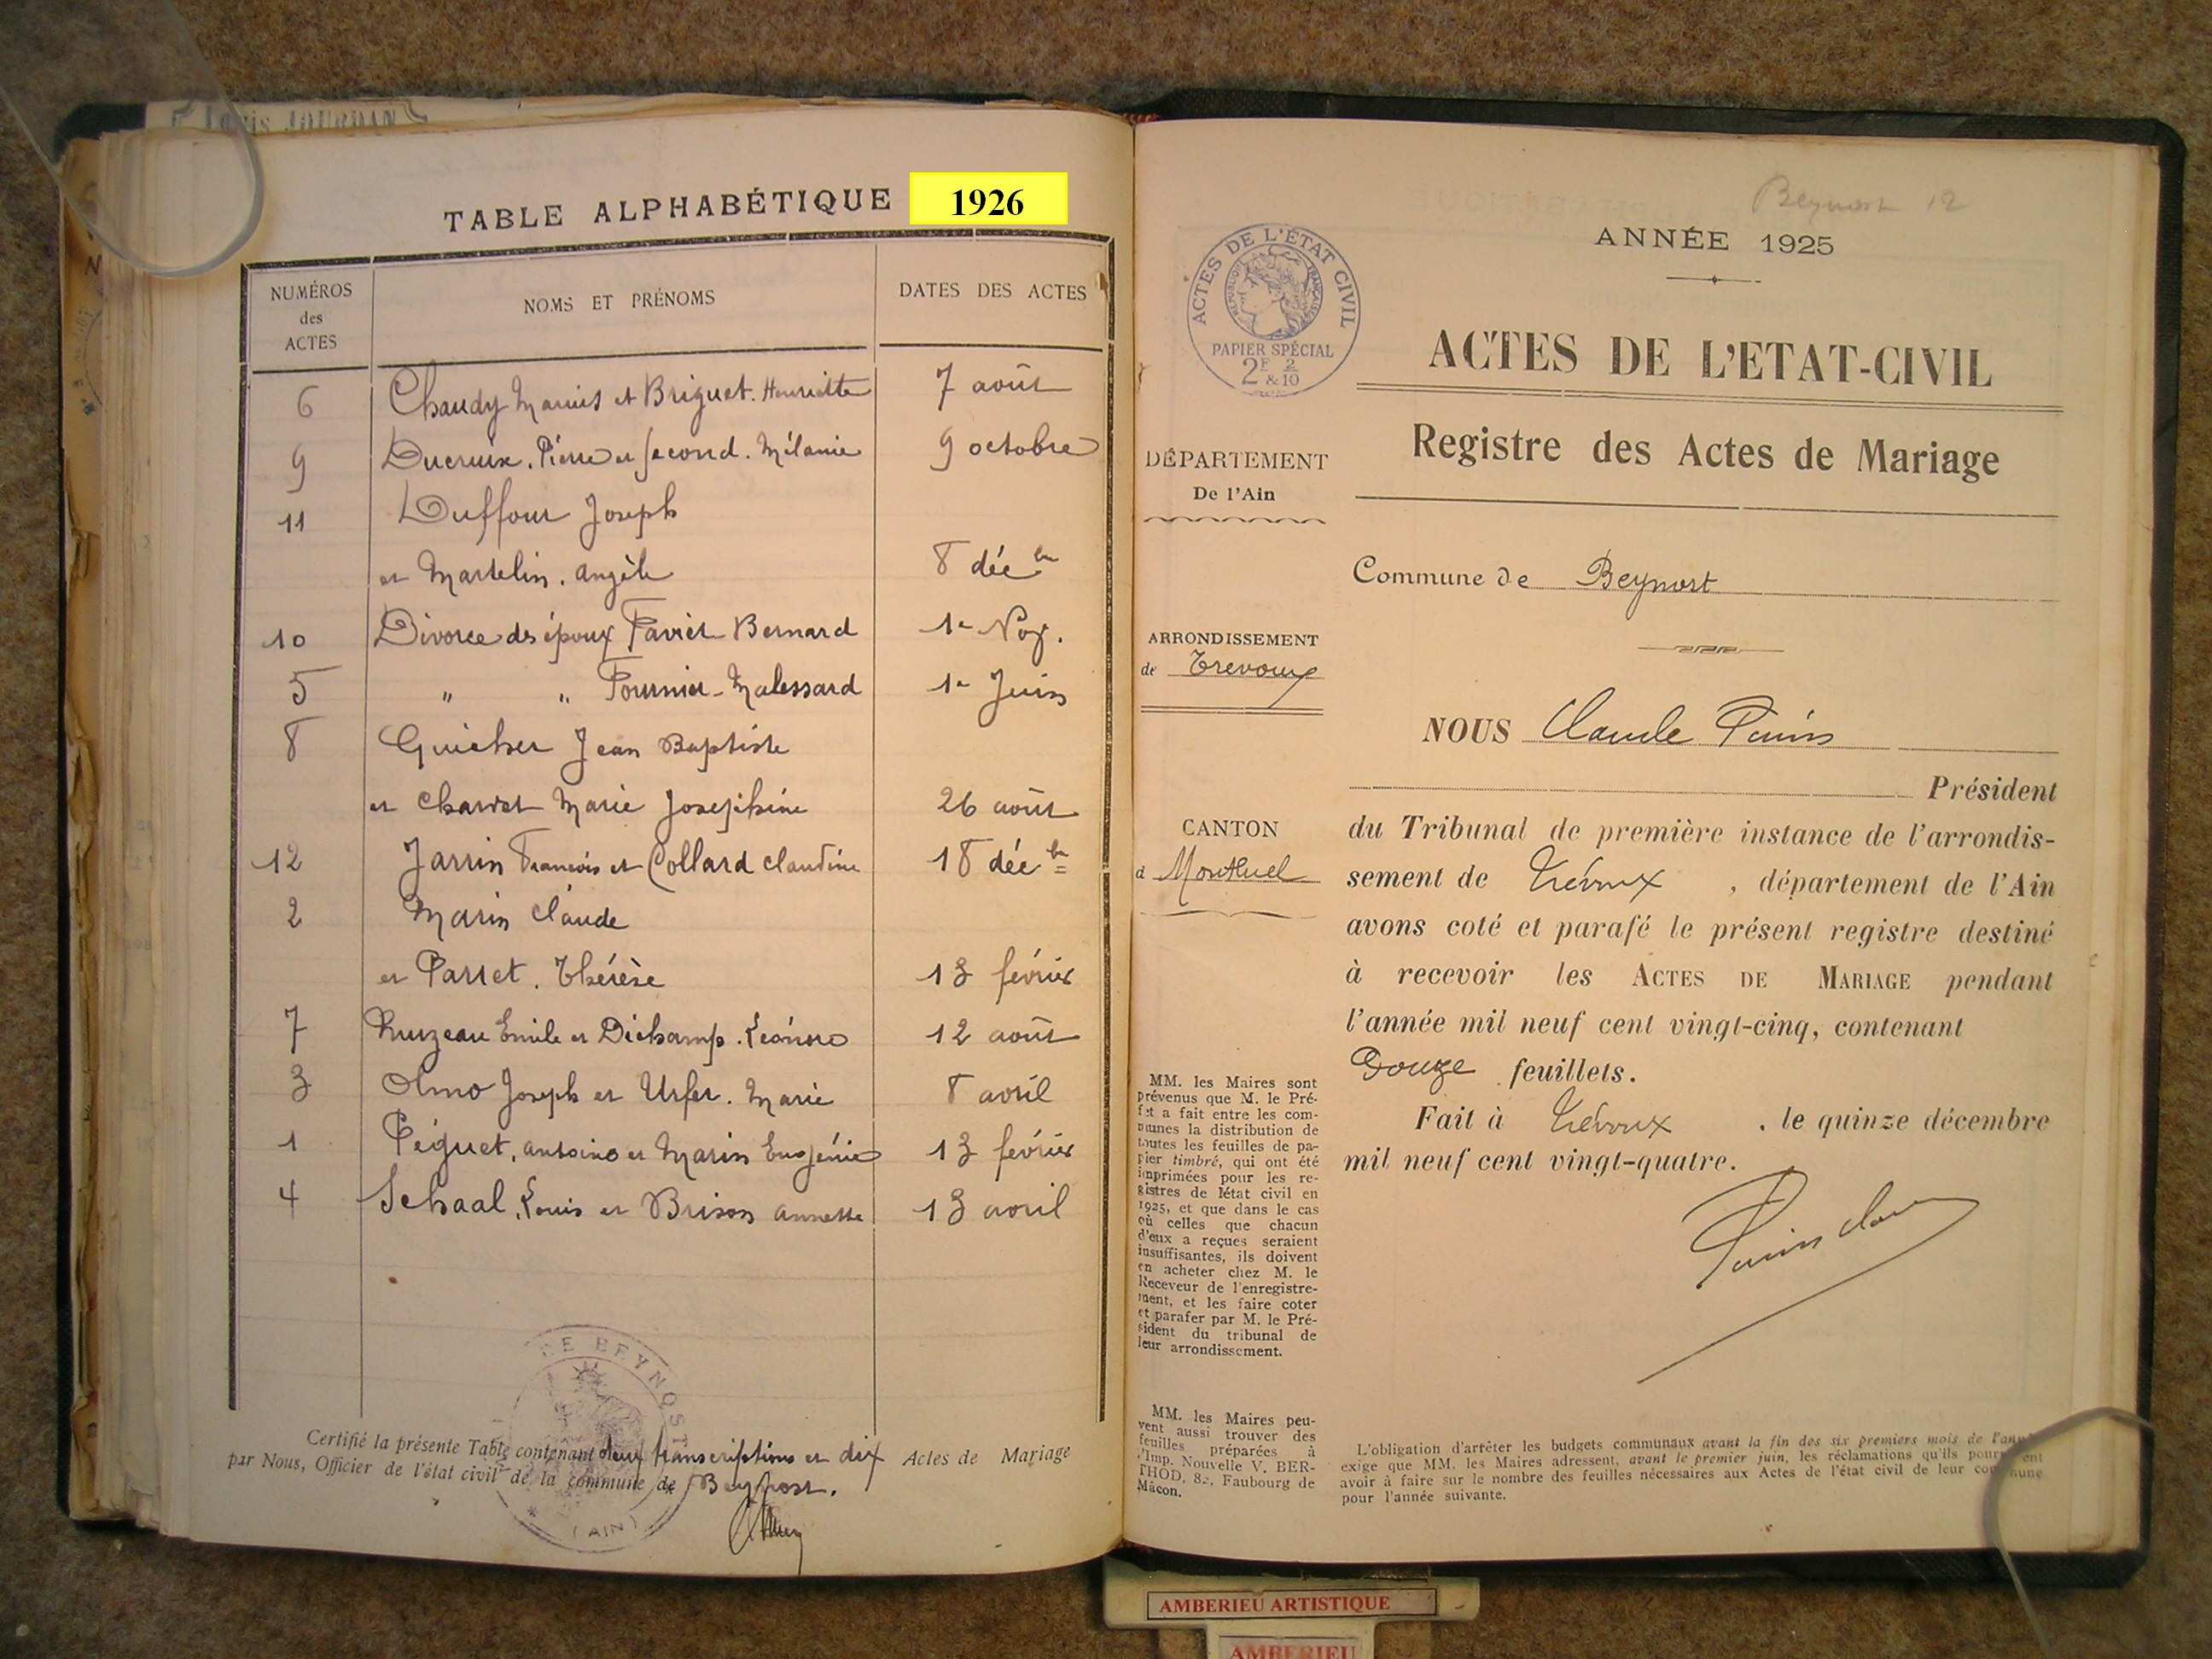 Louis JOURDAN
TABLE ALPHABÉTIQUE 1926
NUMÉROS des ACTES
NOMS ET PRÉNOMS
DATES DES ACTES
6 Chaudy Marius et Briguet. Henriette 7 août
9 Ducruix. Pierre et Second. Mélanie 9 octobre
11 Duffour Joseph
et Martelin. Angèle 8 déc bre
10 Divorce des époux Favier Bernard 1e Nov.
5 " " Fournier-Malessard 1e Juin
8 Guicher Jean Baptiste
et Charvet Marie Josephine 26 août
12 Jarrin François et Collard Claudine 18 déc bre
2 Marin Claude
et Parret. Thérèse 13 février
7 Emile et Dichamp. Léonore 12 août
3 Olmo Joseph et Urfer. Marie 8 avril
1 Péguet, Antoine et Marin Eugénie 13 février
4 Schaal, Louis et Brison Annette 13 avril
DE BEYNOST
(AIN)
Certifié la présente Table contenant deux transcriptions et dix Actes de Mariage
par Nous, Officier de l'état civil de la commune de Beynost.
Beynost 12
ANNÉE 1925
ACTES DE L'ÉTAT CIVIL
RÉPUBLIQUE FRANÇAISE
PAPIER SPÉCIAL
2F 2
& 10
ACTES DE L'ETAT-CIVIL
Registre des Actes de Mariage
DÉPARTEMENT
De l'Ain
Commune de Beynost
ARRONDISSEMENT
de Trevoux
NOUS Claude Punis
Président
CANTON
d Montluel
du Tribunal de première instance de l'arrondis-
sement de Trévoux, département de l'Ain
avons coté et parafé le présent registre destiné
à recevoir les ACTES DE MARIAGE pendant
l'année mil neuf cent vingt-cinq, contenant
Douze feuillets.
Fait à Trévoux, le quinze décembre
mil neuf cent vingt-quatre.
MM. les Maires sont
prévenus que M. le Pré-
fet a fait entre les com-
munes la distribution de
toutes les feuilles de pa-
pier timbré, qui ont été
imprimées pour les re-
gistres de létat civil en
1925, et que dans le cas
où celles que chacun
d'eux a reçues seraient
insuffisantes, ils doivent
en acheter chez M. le
Receveur de l'enregistre-
ment, et les faire coter
et parafer par M. le Pré-
sident du tribunal de
leur arrondissement.
MM. les Maires peu-
vent aussi trouver des
feuilles préparées à
l'Imp. Nouvelle V. BER-
THOD, 82, Faubourg de
Mâcon.
L'obligation d'arrêter les budgets communaux avant la fin des six premiers mois de l'année
exige que MM. les Maires adressent, avant le premier juin, les réclamations qu'ils pourraient
avoir à faire sur le nombre des feuilles nécessaires aux Actes de l'état civil de leur commune
pour l'année suivante.
AMBERIEU ARTISTIQUE
AMBERIEU